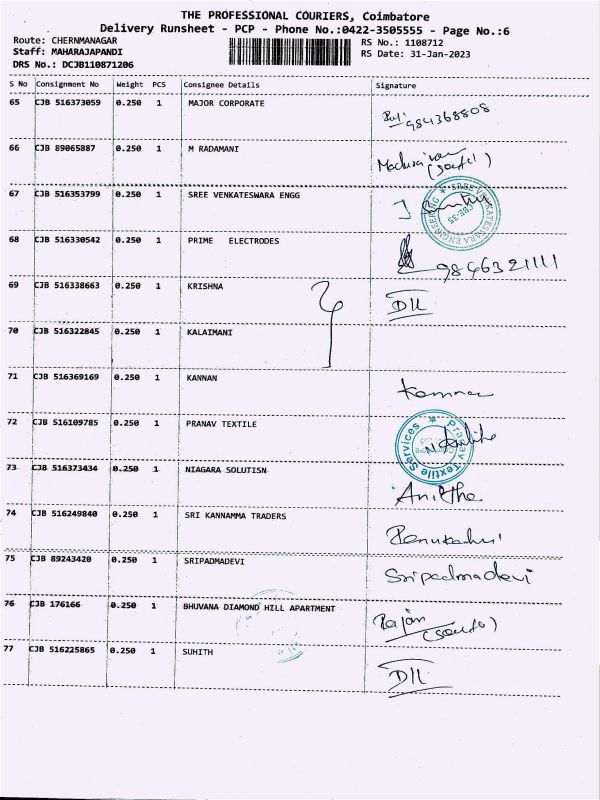 THE PROFESSIONAL COURIERS, Coimbatore
Delivery Runsheet - PCP - Phone No.:0422-3505555 - Page No.:6
Route: CHERNMANAGAR
RS No.: 1108712
Staff: MAHARAJAPANDI
RS Date: 31-Jan-2023
DRS No.: DCJB110871206
S No Consignment No Weight PCS Consignee Details Signature
65 CJB 516373059 0.250 1 MAJOR CORPORATE 984368808
66 CJB 89065887 0.250 1 M RADAMANI
67 CJB 516353799 0.250 1 SREE VENKATESWARA ENGG
SREE VENKATESWARA ENGINEERING CBE-35
68 CJB 516330542 0.250 1 PRIME ELECTRODES 9846321111
69 CJB 516338663 0.250 1 KRISHNA
70 CJB 516322845 0.250 1 KALAIMANI
71 CJB 516369169 0.250 1 KANNAN
72 CJB 516109785 0.250 1 PRANAV TEXTILE
Pranav Textile Services
73 CJB 516373434 0.250 1 NIAGARA SOLUTISN Anitha
74 CJB 516249840 0.250 1 SRI KANNAMMA TRADERS
75 CJB 89243420 0.250 1 SRIPADMADEVI Sripadmadevi
76 CJB 176166 0.250 1 BHUVANA DIAMOND HILL APARTMENT Rajan
77 CJB 516225865 0.250 1 SUHITH